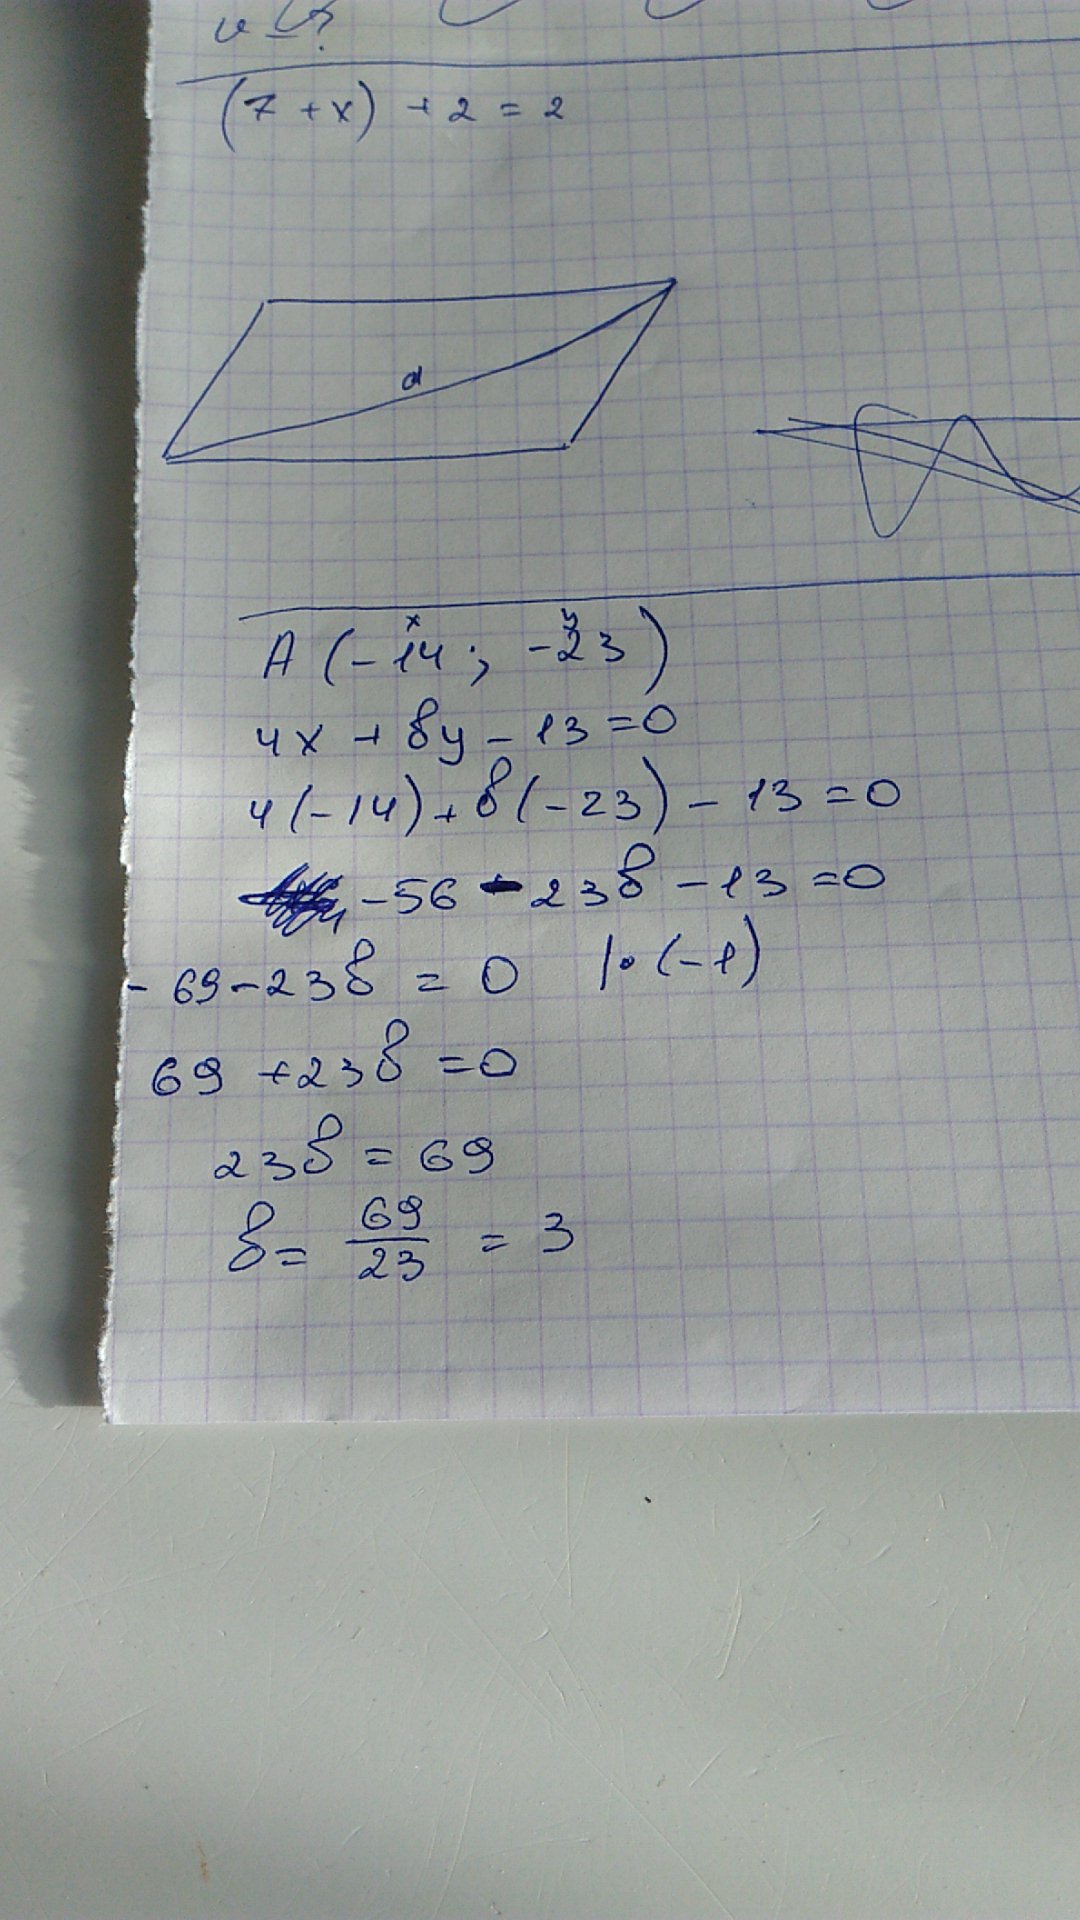 (7 + x) + 2 = 2
d
x y
A (-14 ; -23)
4x + by - 13 = 0
4(-14) + b(-23) - 13 = 0
-56 - 23b - 13 = 0
- 69 - 23b = 0 |· (-1)
69 + 23b = 0
23b = 69
b = 69/23 = 3